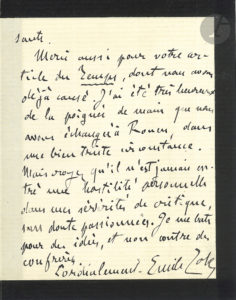 santé.
Merci aussi pour votre ar-
ticle du Temps, dont nous avons
déjà causé. J'ai été très heureux
de la poignée de main que nous
avons échangée à Rouen, dans
une bien triste circonstance.
Mais croyez qu'il n'est jamais en-
tré une hostilité personnelle
dans mes sévérités de critique,
sans doute passionnées. Je me bats
pour des idées, et non contre des
confrères.
Cordialement. Emile Zola